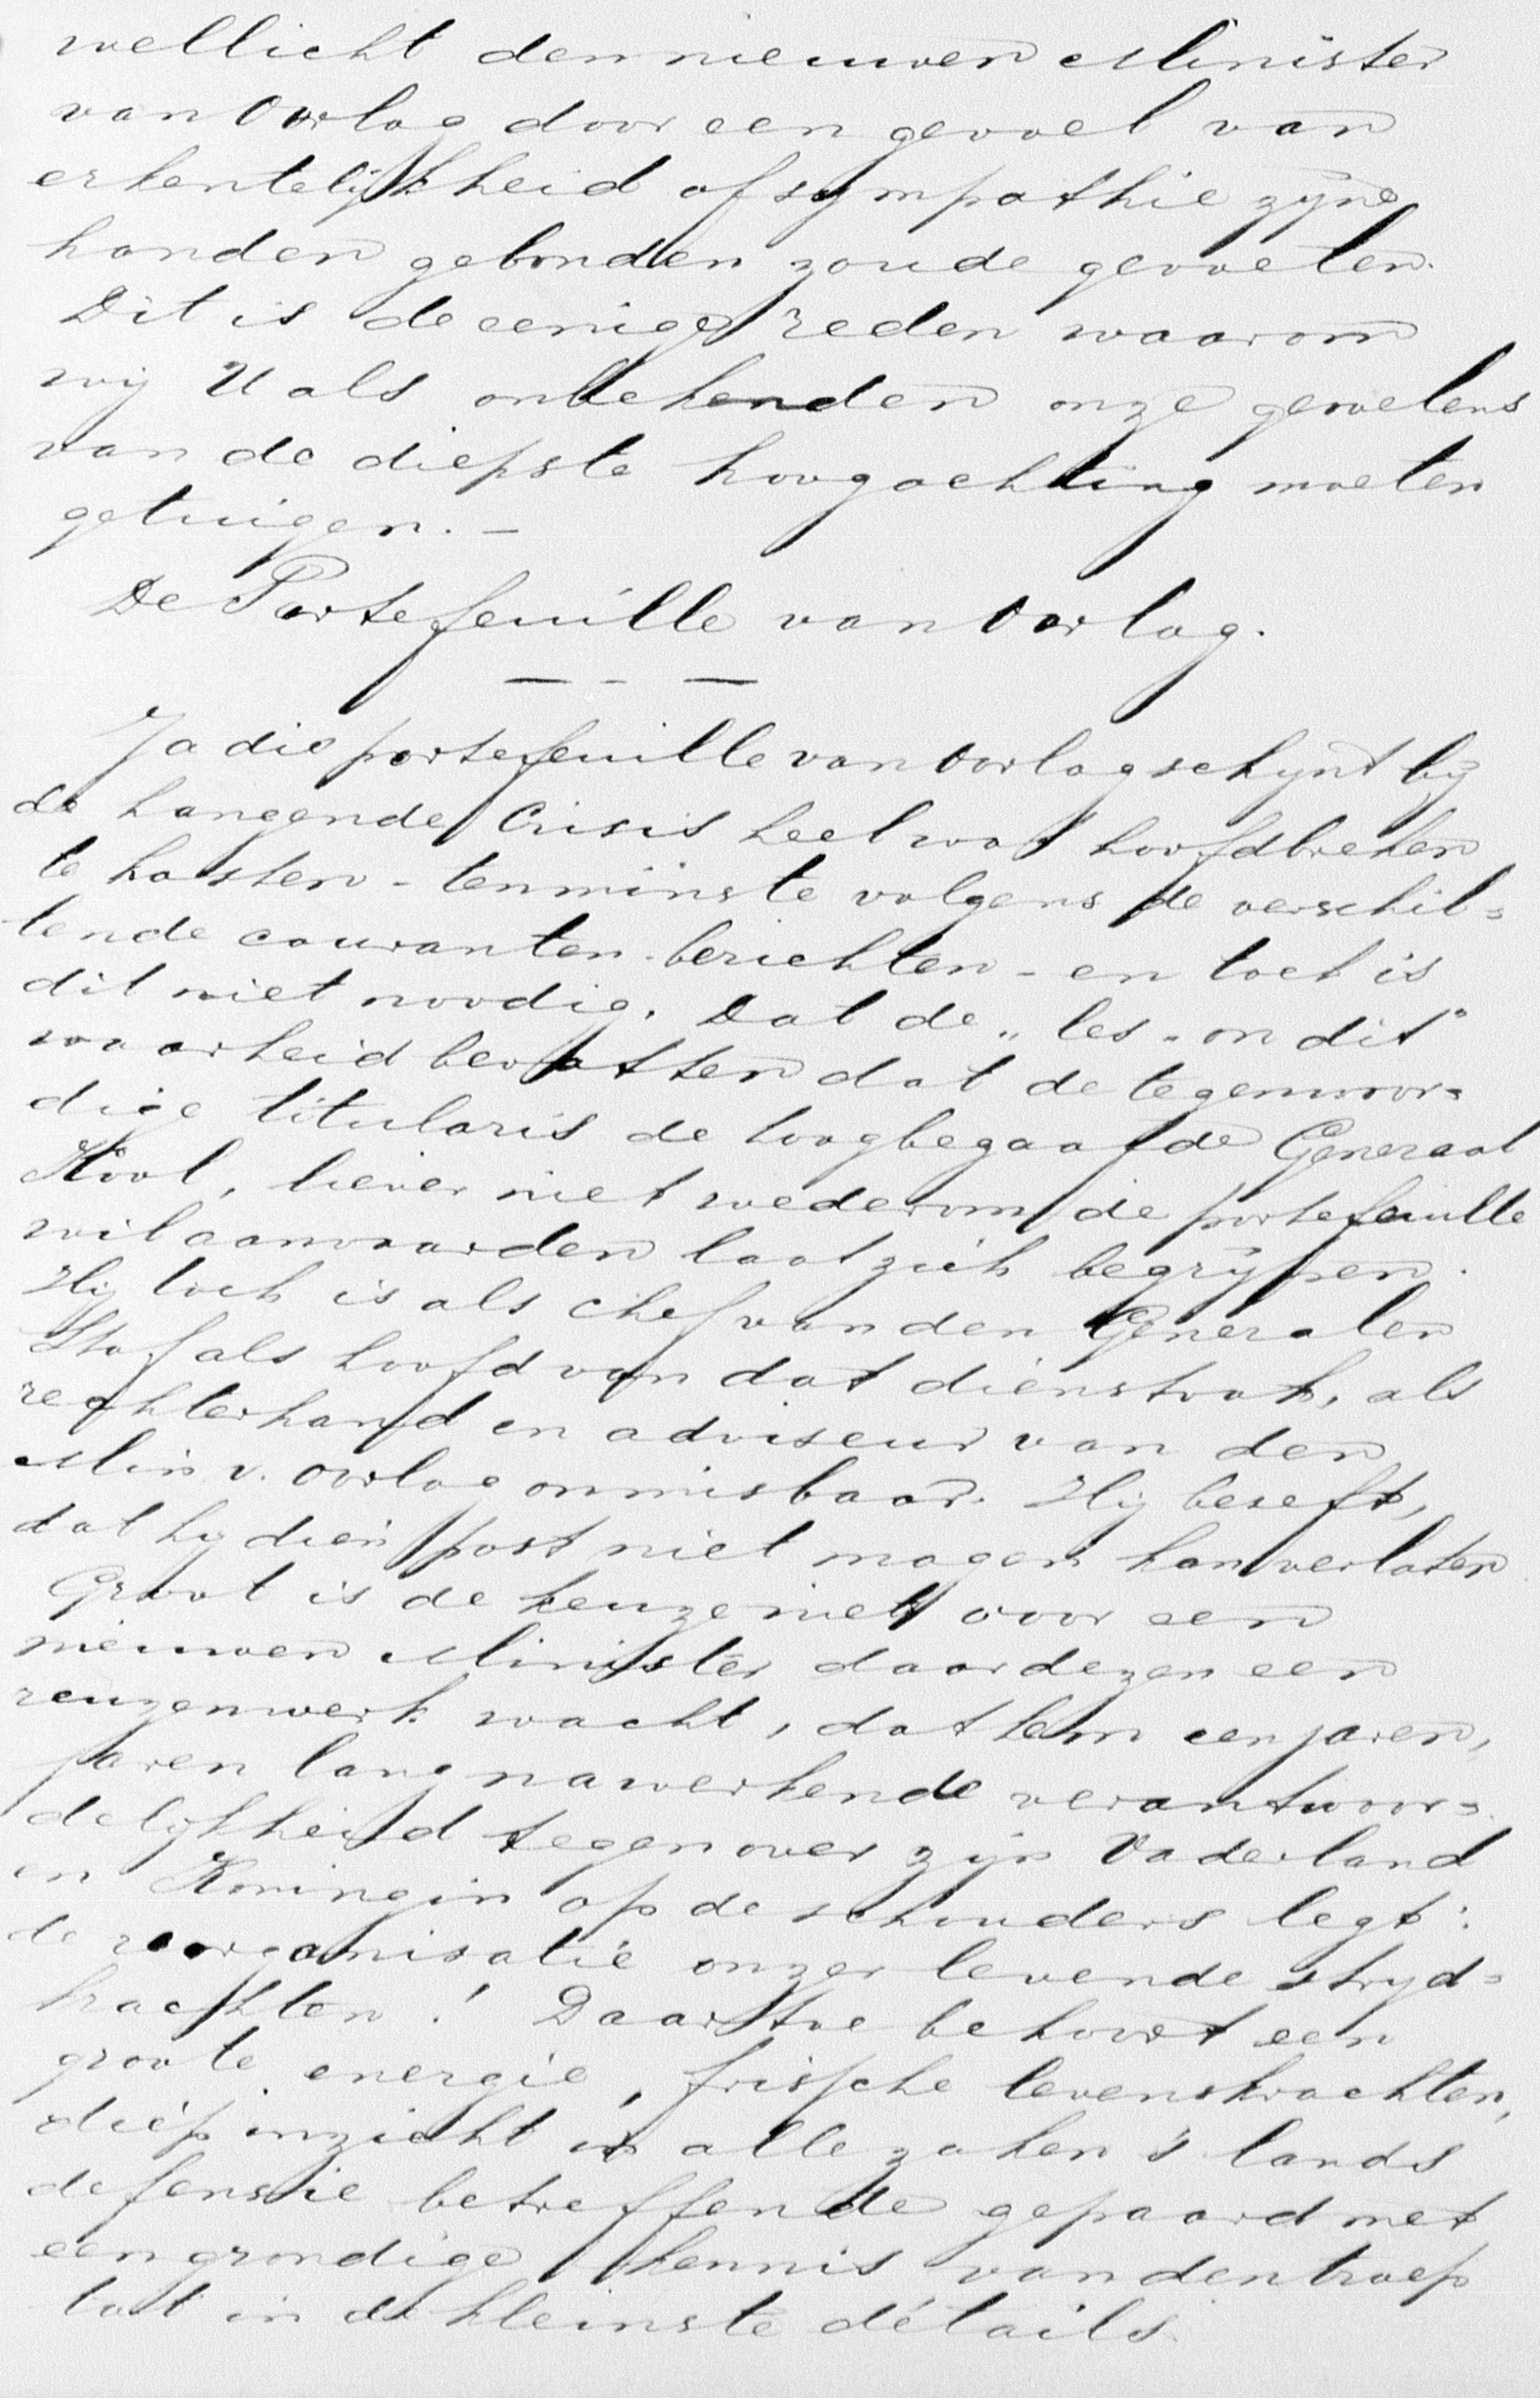 wellicht den nieuwen Minister
van Oorlog door een gevoel van
erkentelijkheid of sympathie zyne
handen gebonden zoude gevoelen.
Dit is de eenige reden waarom
wij U als onbekenden onze gevoelens
van de diepste hoogachting moeten
getuigen. —
De Portefeuille van Oorlog.
— - —
Ja die portefeuille van Oorlog schynt by
de hangende Crisis heel wat hoofdbreken
te kosten - tenminste volgens de verschil=
lende couranten-berichten - en toch is
dit niet noodig. Dat de „les-on dit"
waarheid bevatten dat de tegenwoor=
dige titularis de hoogbegaafde Generaal
Kool, liever niet wederom de portefeuille
wil aanvaarden laat zich begrypen.
Hij toch is als Chef van den Generalen
Staf als hoofd van dat dienstvak, als
rechterhand en adviseur van den
Min v. Oorlog onmisbaar. Hij beseft,
dat hy dien post niet mogen kan verlaten.
Groot is de keuze niet voor een
nieuwen Minister daar dezen een
reuzenwerk wacht, dat hem een jaren,
jaren lang nawerkende verantwoor=
delijkheid tegenover zijn Vaderland
en Koningin op de schouders legt:
de reorganisatie onzer levende stryd=
krachten! Daartoe behoort een
groote energie, frissche levenskrachten,
diep inzicht in alle zaken 's lands
defensie betreffende gepaard met
een grondige kennis van den troep
tot in de kleinste détails.